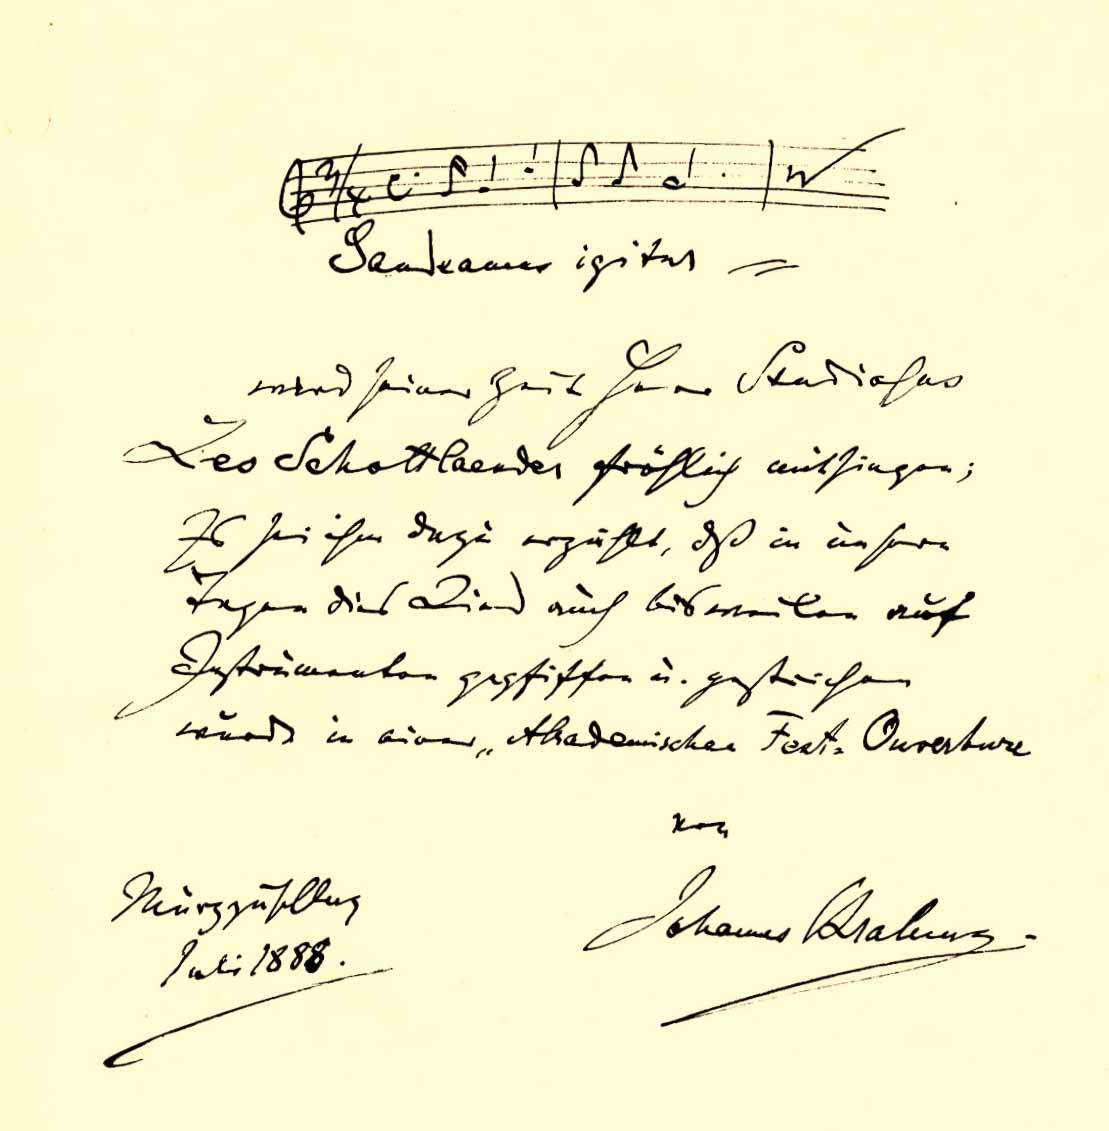 Gaudeamus igitur
wird seiner Zeit Herr Studiosus
Leo Schottlaender fröhlich mitsingen;
Es sei ihm dazu erzählt, daß in unsern
Tagen dies Lied auch bisweilen auf
Instrumenten gepfiffen u. gestrichen
wurde in einer „Akademischen Fest-Ouverture
von
Johannes Brahms.
Mürzzuschlag
Juli 1888.